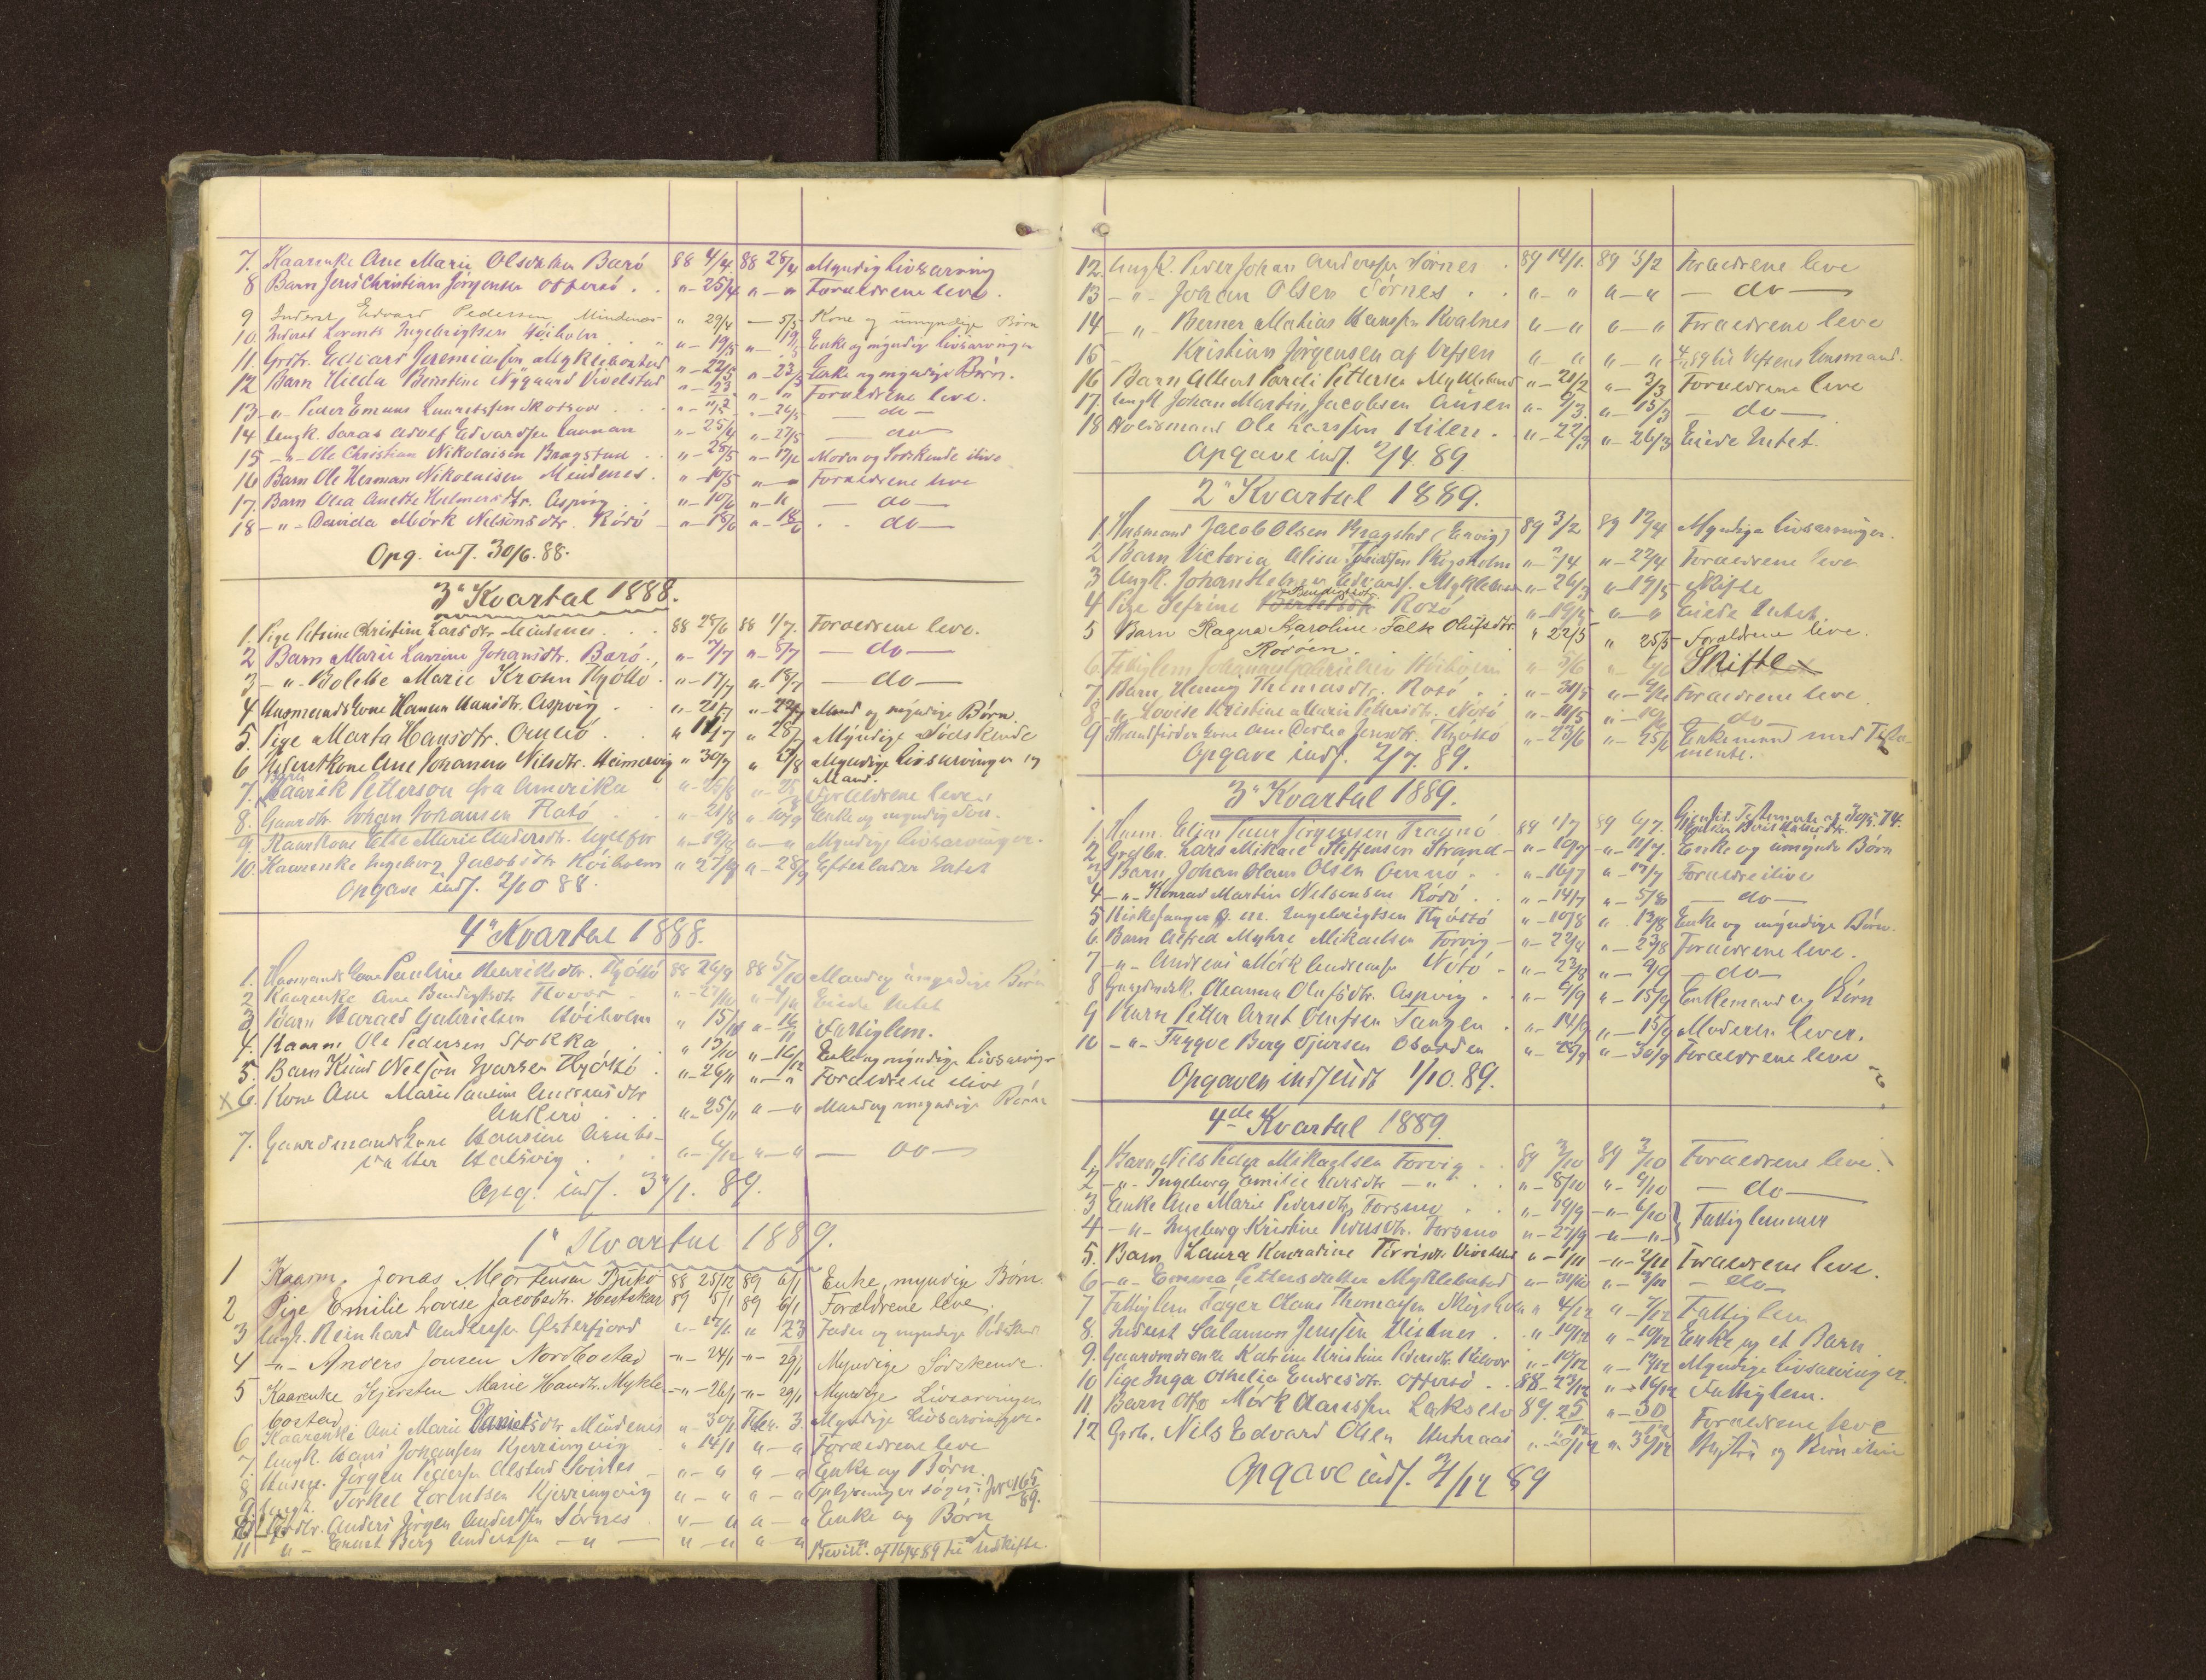 7. Kaarenke Ane Marie Olsdatter Barö 88 4/4 88 28/4 Myndig livsarving
8 Barn Jens Christian Jörgensen Offersö . . "- 25/4 "-" Forældrene leve.
9 Inderst Edvard Pedersen Mindenes " 29/4 - 5/5 Kone og umyndige Børn
10. Inderst Lorents Ingebrigtsen Höiholm "- 19/5 "- Enke og myndige livsarvinger
11. Grdbr. Edvard Jeremiassen Myklebostad "- 22/5 "- 23/5 Enke og myndige Børn.
12 Barn Hilda Berntine Nygaard Vivelstad "- 23 "-" Forældrene leve.
13 -"- Peder Emans Lauritssen "- 26/5 - do -
14 Ungk. Edvardsen "- 25/4 "- 27/5 - do -
15 -"- Ole Christian Nikolaisen Bragstad "- 28/5 "- 17/6 Moder og Södskende ilive
16 Barn Ole Herman Nikolaisen Mindenes. "- 10/5 "-" Forældrene leve
17. Barn Olea Anette Helmersdtr. Aspvig "- 10/6 "-" - do -
18 -"- Davida Mörk Nelsonsdtr. Rödö "- 18/6 "- 18/6 - do -
Opg. inds. 30/6. 88.
3" Kvartal 1888.
1. Pige Petrine Christine Larsdtr. Mindenes 88 28/6 88 1/7. Forældrene leve.
2 Barn Marie Lavrine Johansdtr. Barö "- 7/7 "- 8/7 - do -
3 -"- Bolette Marie Krohn Tjöttö "- 17/7 "- 18/7 - do -
4 Husmandskone Hanna Hansdtr. Aspvig "- 21/7 "- 22/7 Mand og myndige Børn.
5. Pige Marta Hansdtr. Omnö " 14/7 " 28/7 Myndige Södskende
6 Inderstkone Ane Johanna Nilsdtr. Heimervig " 30/7 " /8 Myndige livsarvinger og Mand.
7. Barn Petterson fra Amerika "- 25/8 "- 28 Forældrene leve
8. Gaardbr. Johan Johansen Rosö "- 21/8 "- Enke og myndig Sön.
9. Kaarkone Else Marie Andersdtr. "- 19/8 "-" Myndige livsarvinger.
10. Kaarenke Ingeborg Jacobsdtr. Höiholm " 27/8 "- 28/9 Efterlader Intet
Opgave inds. 2/10 88.
4" Kvartal 1888.
1. Husmands Kone Pauline Henriksdtr. Tjöttö 88 26/9 88 5/10 Mand og umyndige Børn
2 Kaarenke Ane Bendigtsdtr "- 27/10 "- Eiede Intet
3. Barn Harald Gabrielsen Höiholm " 15/10 "- 16/11 Fattiglem.
4. Kaarm. Ole Pedersen Stokka " 13/10 "- 16/12 Enke og myndige livsarvinger
5. Barn Knud Nelson Tjöttö "- 26/11 "-" Forældrene ilive
x 6. Kone Ane Marie Andreasdtr "- 25/11 "-" Mand og umyndige Børn
7. Gaardmandskone Hansine Arntsdatter Hatsvig "- 6/12 "-" - do -
Opg. inds. 3/1. 89.
1" Kvartal 1889.
1 Kaarm. Jonas Mortensen Bukö 88 25/12 89 6/1 Enke, myndige Børn
2 Pige Emilie Lovise Jacobsdtr. Hestskar 89 5/1 89 6/1 Forældrene leve.
3 Ungk. Reinhard Anderssen Østerfjord "- 12/1. " 23 Fader og myndige Södskend
4 -"- Anders Jonsen Nordbostad -"- 24/1 -"- 29/1 Myndige Södskende.
5 Kaarenke Kjersten Marie Hansdtr. Myklebostad -"- 26/1 -"- 29/1 Myndige Livsarvinger
6 Kaarenke Ane Marie Danielsdtr Mindenes "- 30/1 Febr. 3. Myndige Livsarvinger.
7. Ungk. Hans Johansen Kjerringvig " 14/1 "-" Forældrene leve
8 Husm. Jörgen Pedersen Olstad Sörnes "-" "-" Enke og Börn.
9 Ungk. Torkel Lorentsen Kjerringvig "-" "-" Oplysninger søges: Jr. 165/89.
10 Grdbr. Anders Jörgen Anderssen Sörnes. "-" "-" Enke og Børn
11 " - Ernst Berg Anderssen -"- "-" "-" Bevill. af 16/4 89 til Uskifte.
12 Ungk. Peder Johan Anderssen Sörnes . 89 14/1. 89 3/2 Forældrene leve
13 -"- Johan Olsen Sörnes . . "-" "-" - do -
14 -"- Berner Mathias Hanssen Kvalnes "-" "-" Forældrene leve
15 - Kristian Jörgensen af Vefsen "-" "-" 89 til Vefsens lensmand.
16 Barn Albert Pareli Pettersen Myklebust "- 21/2 "- 3/3 Forældrene leve
17 Ungk Johan Martin Jacobsen Ausen "- 3. "- 15/3 - do -
18 Ole Larssen Kilen. "- 22/3 "- 26/3 Eiede Intet.
Opgave inds. 2/4. 89.
2" Kvartal 1889.
1. Husmand Jacob Olsen Bragstad (Envig) 89 3/2 89 12/4 Myndige livsarvinger.
2 Barn Victoria Alisa Skogsholm " 7/4 "- 22/4 Forældrene leve
3 Ungk. Johan Helmer Edvards. Myklebust "- 26/3 "- 19/5 Skifte
4 Pige Sefrine Bendigtsdtr. Rosö "- 19/5 "-" Eiede Intet
5 Barn Ragna Karoline Falk Olufsdtr. Rosöen. " 22/5 " 25/5 Forældrene leve.
6. Fattiglem Johannes Gabrielsen Höiholm "- 5/6 " Skifte
7 Barn Henny Thomasdtr. Rosö "- 30/5 "- Forældrene leve
8 -"- Lovise Kristine Marie Pettersdtr. Nötö "- 11/5 "- 19/6 - do -
9 Strandsidderkone Ane Dortea Jensdtr. Tjöttö "- 23/6 "- 25/6 Enkemand med Testamente.
Opgave inds. 2/7. 89.
3" Kvartal 1889.
1. Husm. Elias Jörgensen Tragnö 89 1/7 89 6/7. Gjens. Testamente af 30/5. 74.
2. Grdbr. Lars Mikael Steffensen Strand "- 10/7 "- 11/7. Enke og umyndige Børn
3 Barn Johan Olaus Olsen Omnö. "- 16/7 "- 17/7 Forældre ilive
4 -"- Konrad Martin Nelsonsen Rödö. "- 14/7 "- 5/8 - do -
5 Kirkesanger P. M. Ingebrigtsen Tjöttö "- 10/8 ". 13/8 Enke og myndige Børn.
6. Barn Alfred Myhre Mikaelsen Forvig - "- 22/8 "- 23/8 Forældrene leve.
7 -"- Andreas Mörk Andreassen Nötö - "- 23/8 "- 9/9 - do -
8 Gaardmdsk. Oleanna Olufsdtr. Aspvig "- 6/9 "- 15/9 Enkemand og Børn
9 Barn Petter Arnt Olufsen Tangen "- 14/9 "- 15/9 Moderen lever.
10 -"- Trygve Berg Sjursen "- 28/9 "- 30/9 Forældrene leve
Opgaven indsendt 1/10. 89.
4de Kvartal 1889.
1. Barn Nils Peder Mikaelsen Forvig . . 89 3/10 89 3/10 Forældrene leve.
2 -"- Ingeborg Emilie Larsdtr. -"- . . "- 8/10 "- 9/10 - do -
3 Enke Ane Marie Pedersdtr Forsmo "- 19/9 -"- 6/10 } Fattiglemmer
4 -"- Ingeborg Kristine Pedersdtr. Forsmo "- 27/9 -"-"-
5. Barn Laura Konradine Vivelstad "- 1/11 -"- 2/11 Forældrene leve.
6 -"- Emma Pettersdatter Myklebustad "- 31/10 "- 3/11 - do -
7 Fattiglem Olaus Thomassen Skogsholm " 4/12 "- 7/12 Fattiglem
8. Inderst Salamon Jenssen Vistnes . "- 10/12 "- 10/12 Enke og et Barn
9. Gaardmdsenke Katrine Kristine Pedersdtr. "- 10/12 "- 12/12 Myndige livsarvinger.
10 Pige Inga Othelie Endresdtr. Offersö . . 88 - 23/12 " - 16/12 Fattiglem.
11. Barn Otto Mörk Olaissen Laksebo 89. 25/12 "- 30/12 Forældrene leve
12 Grdb. Nils Edvard Olsen " 31/12 Hustru og Børn ilive
Opgave inds. 31/12 89